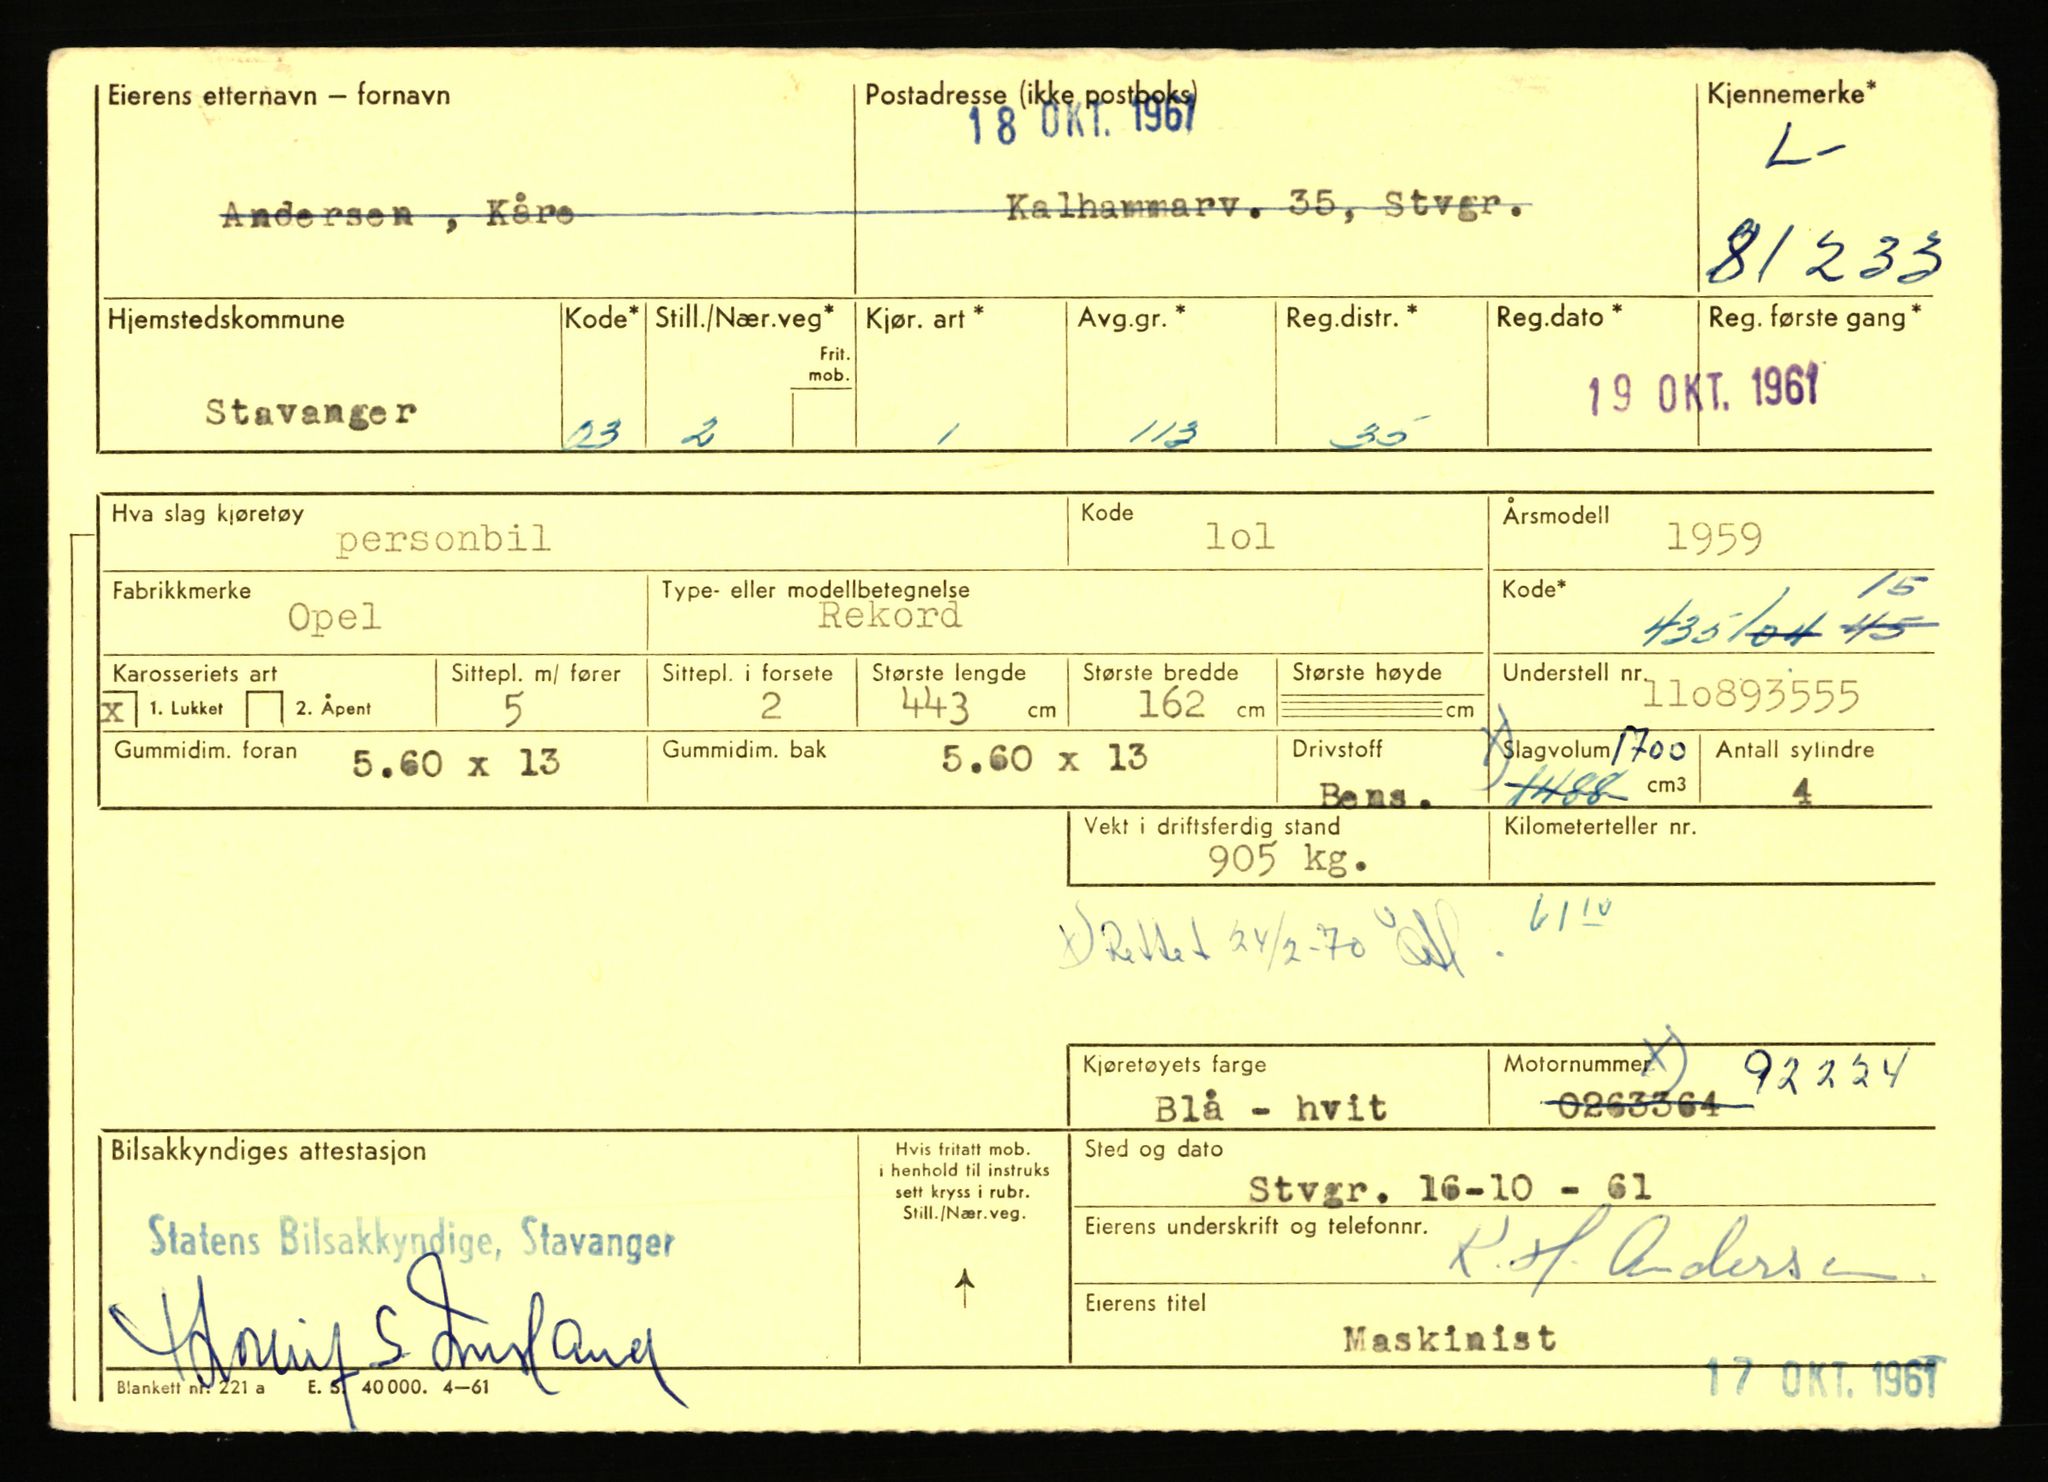 Eierens etternavn – fornavn
Postadresse (ikke postboks)
Kjennemerke*
18 OKT. 1961
L-
Andersen , Kåre
Kalhammarv. 35, Stvgr.
81233
Hjemstedskommune
Kode*
Still./Nær.veg*
Frit. mob.
Kjør. art *
Avg.gr. *
Reg.distr. *
Reg.dato *
Reg. første gang *
19 OKT. 1961
Stavanger
03
2
1
113
35
Hva slag kjøretøy
personbil
Kode
lol
Årsmodell
1959
Fabrikkmerke
Opel
Type- eller modellbetegnelse
Rekord
Kode*
15
435/04 45
Karosseriets art
x 1. Lukket 2. Åpent
Sittepl. m/ fører
5
Sittepl. i forsete
2
Største lengde
443 cm
Største bredde
162 cm
Største høyde
cm
Understell nr.
11o893555
Gummidim. foran
5.60 x 13
Gummidim. bak
5.60 x 13
Drivstoff
Bens.
x) Slagvolum 1700
1488 cm3
Antall sylindre
4
Vekt i driftsferdig stand
905 kg.
Kilometerteller nr.
x) Rettet 24/2-70
61 10
Kjøretøyets farge
Blå - hvit
Motornummer x) 92224
0263364
Bilsakkyndiges attestasjon
Statens Bilsakkyndige, Stavanger
Hvis fritatt mob.
i henhold til instruks
sett kryss i rubr.
Still./Nær.veg.
Sted og dato
Stvgr. 16-10 - 61
Eierens underskrift og telefonnr.
K. H. Andersen.
Eierens titel
Maskinist
17 OKT. 1961
Blankett nr. 221 a E. S. 40 000. 4–61